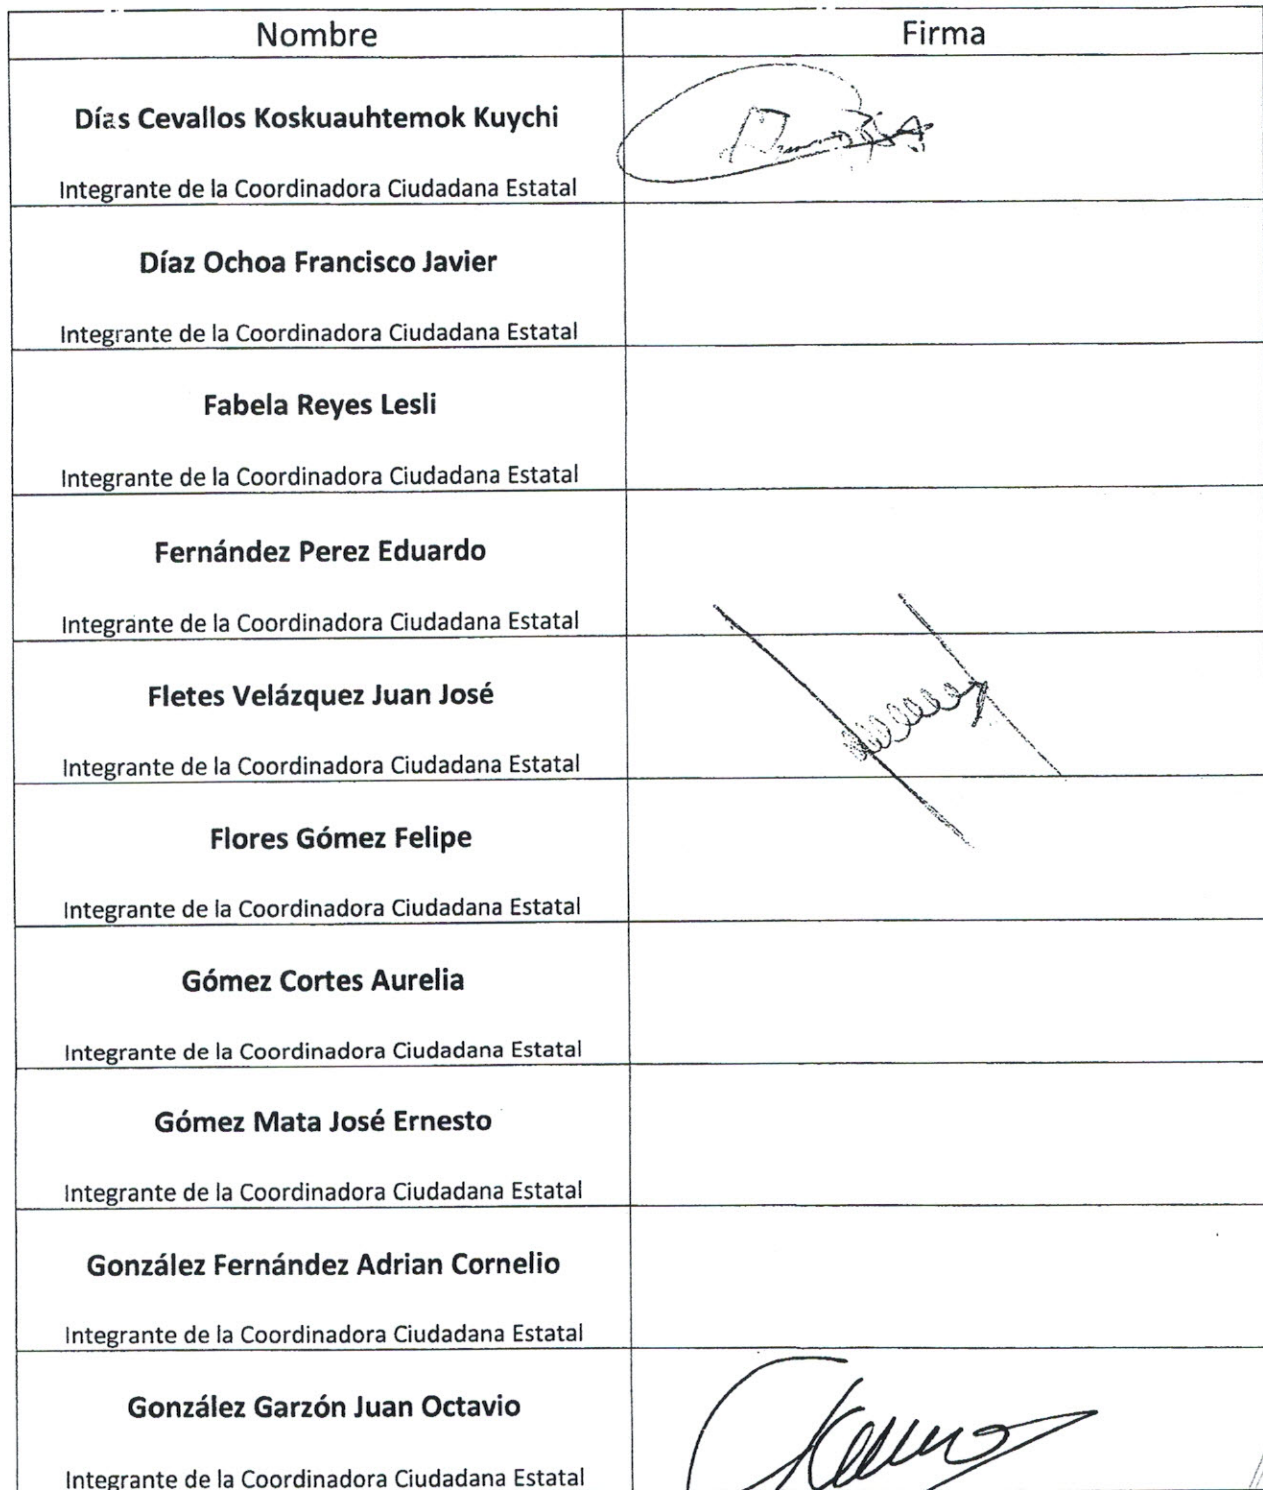 Nombre Firma
Días Cevallos Koskuauhtemok Kuychi
Integrante de la Coordinadora Ciudadana Estatal
Díaz Ochoa Francisco Javier
Integrante de la Coordinadora Ciudadana Estatal
Fabela Reyes Lesli
Integrante de la Coordinadora Ciudadana Estatal
Fernández Perez Eduardo
Integrante de la Coordinadora Ciudadana Estatal
Fletes Velázquez Juan José
Integrante de la Coordinadora Ciudadana Estatal
Flores Gómez Felipe
Integrante de la Coordinadora Ciudadana Estatal
Gómez Cortes Aurelia
Integrante de la Coordinadora Ciudadana Estatal
Gómez Mata José Ernesto
Integrante de la Coordinadora Ciudadana Estatal
González Fernández Adrian Cornelio
Integrante de la Coordinadora Ciudadana Estatal
González Garzón Juan Octavio
Integrante de la Coordinadora Ciudadana Estatal